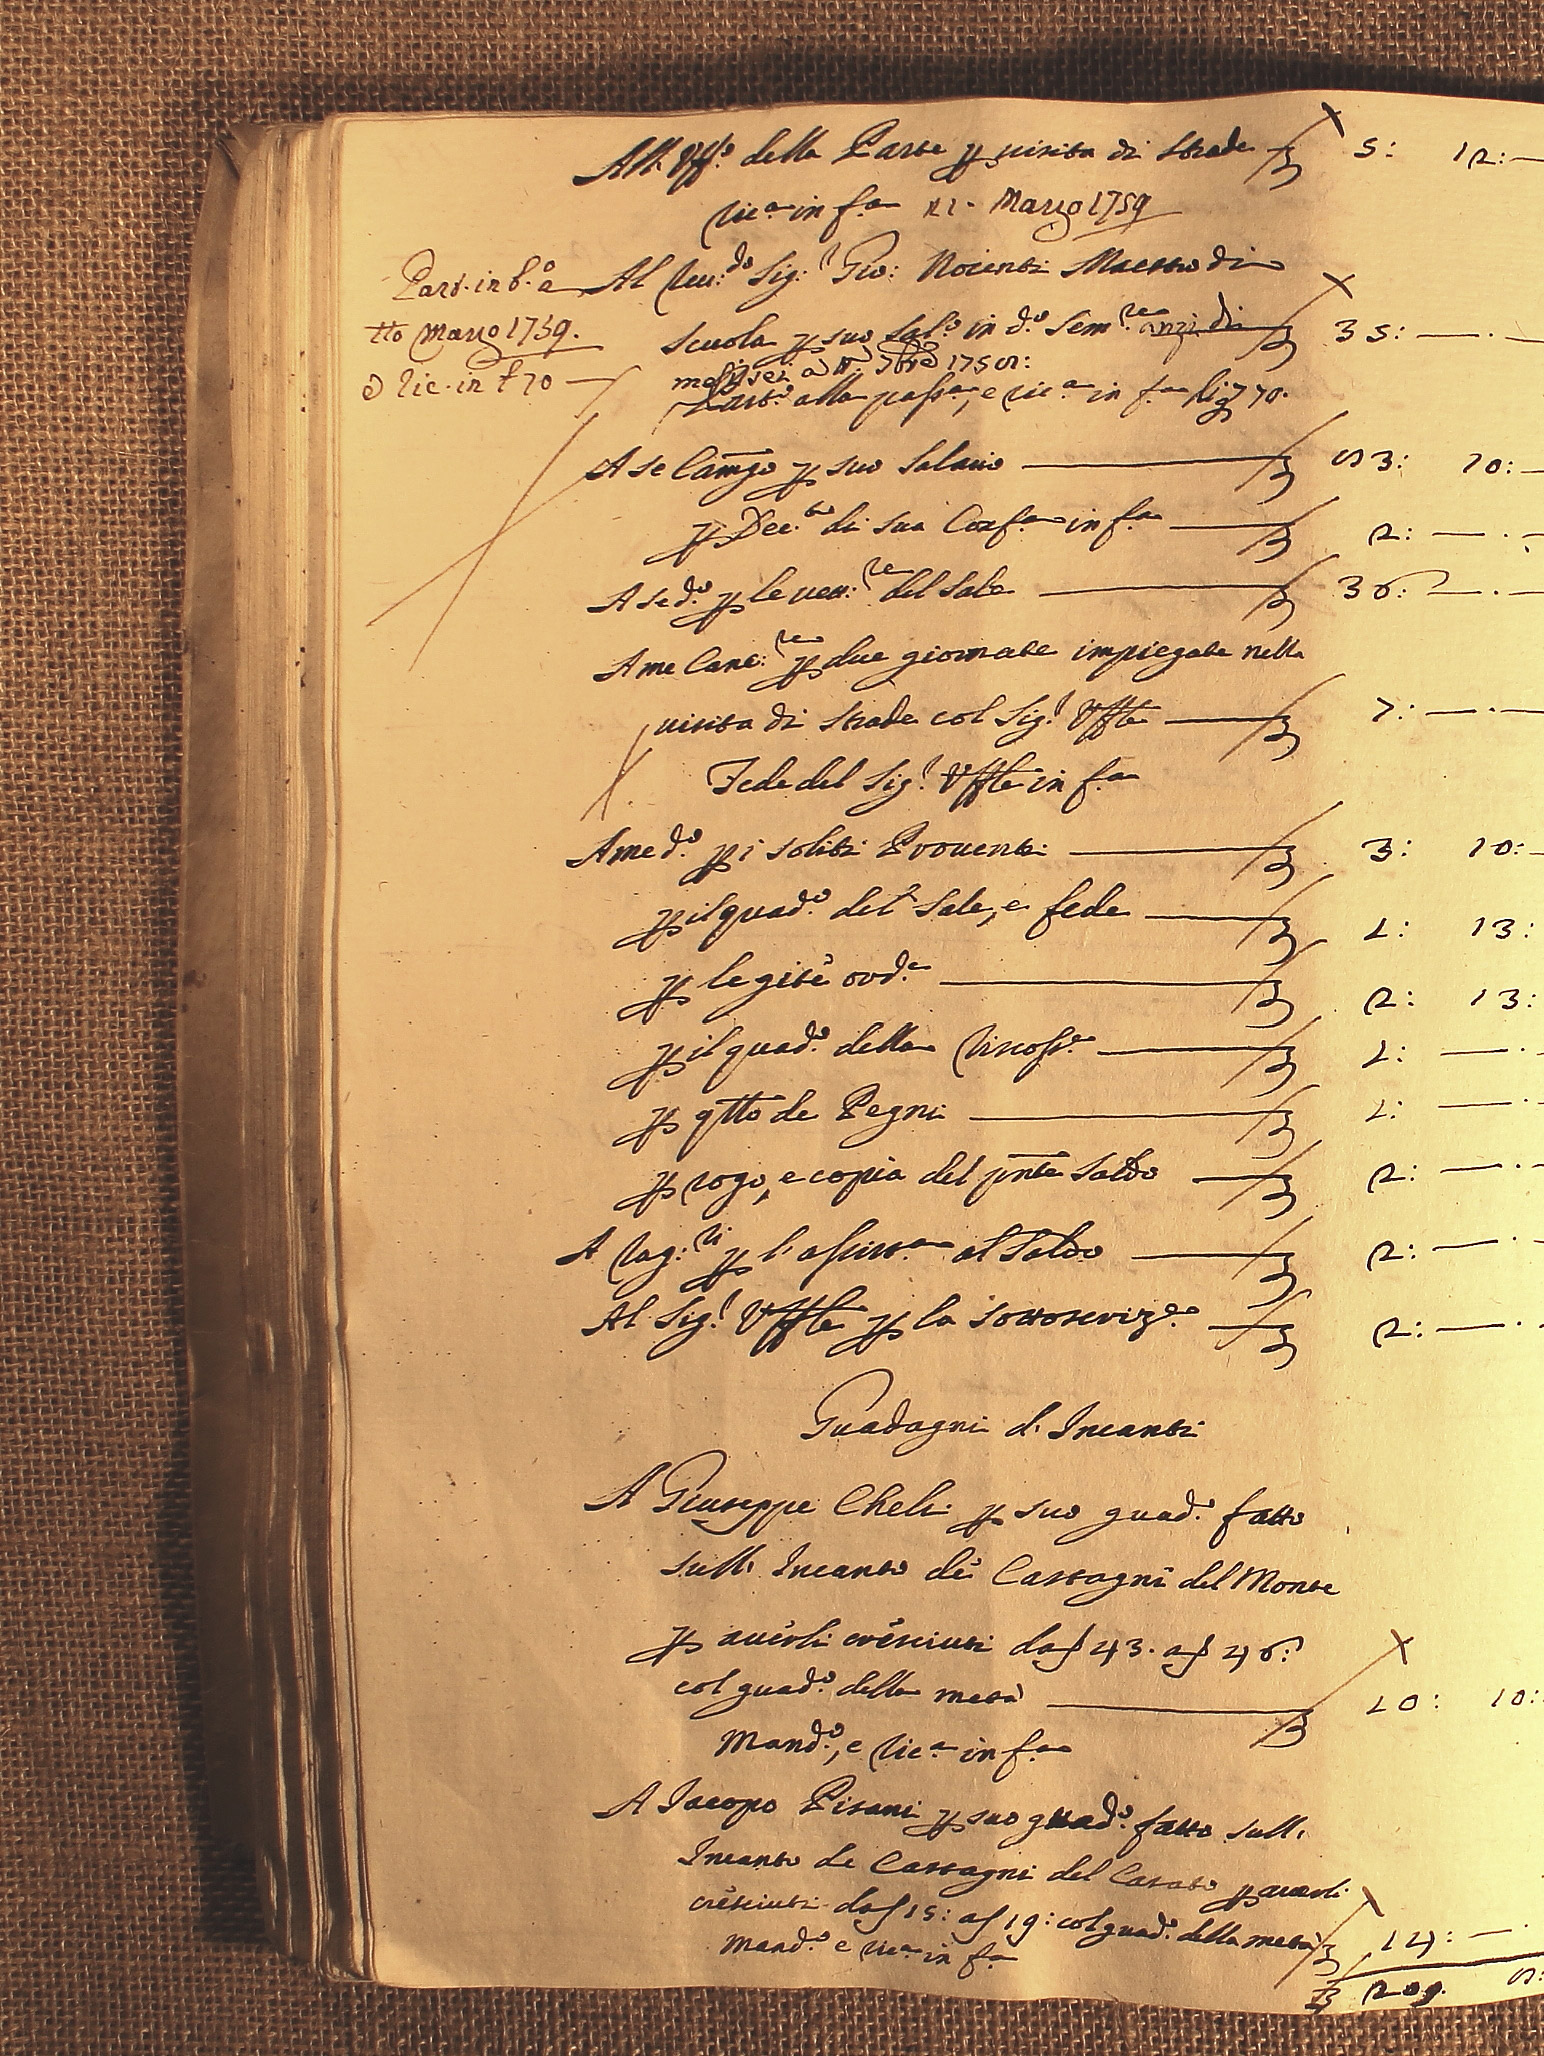 All' Uff.o della Parte p visita di strade 5: 12:—
Ric.a in f.a 21. Marzo 1759
Al Reu.do Sig.r Gio: Nocenti Maestro di
Part. in b.o a
tto Marzo 1759.
e Ric. in f 70
scuola p suo Sal.o in d.o Sem.re anzi di 35: — . —
mesi sei a tt.o 7bre 1758:
Part.o alla pass.a, e Ric.a in f.a 70.
A se Camgo p suo Salario 53: 10:
p Dec.to di sua Conf.a in f.a 2: — . —
A se d.o p le vett.re del Sale 36: — . —
A me Canc.re p due giornate impiegate nella
visita di strade col Sig.r Uffle 7: — . —
Fede del Sig.r Uffle in f.a
A me d.o p i soliti Proventi 3: 10:
p il quad.o del Sale, e fede 1: 13:
p le gite ord.e 2: 13:
p il quad.o della Riscoss.e 1: — . —
p qtto de Pegni 1: — . —
p rogo, e copia del pnte Saldo 2: — . —
A Rag.ri p l'assist.a al Saldo 2: — . —
Al Sig.r Uffle p la sottoscriz.e 2: — . —
Guadagni d'Incanti
A Giuseppe Cheli p suo guad.o fatto
sull' Incanto dei Castagni del Monte
p averli cresciuti da f 43. a f 46:
col guad.o della metà 10: 10:
Mand.o, e Ric.a in f.a
A Jacopo Pisani p suo guad.o fatto sull'
Incanto de Castagni del Casato p averli
cresciuti da f 15: a f 19: col guad.o della metà 14: — .
Mand.o e Ric.a in f.a
209.